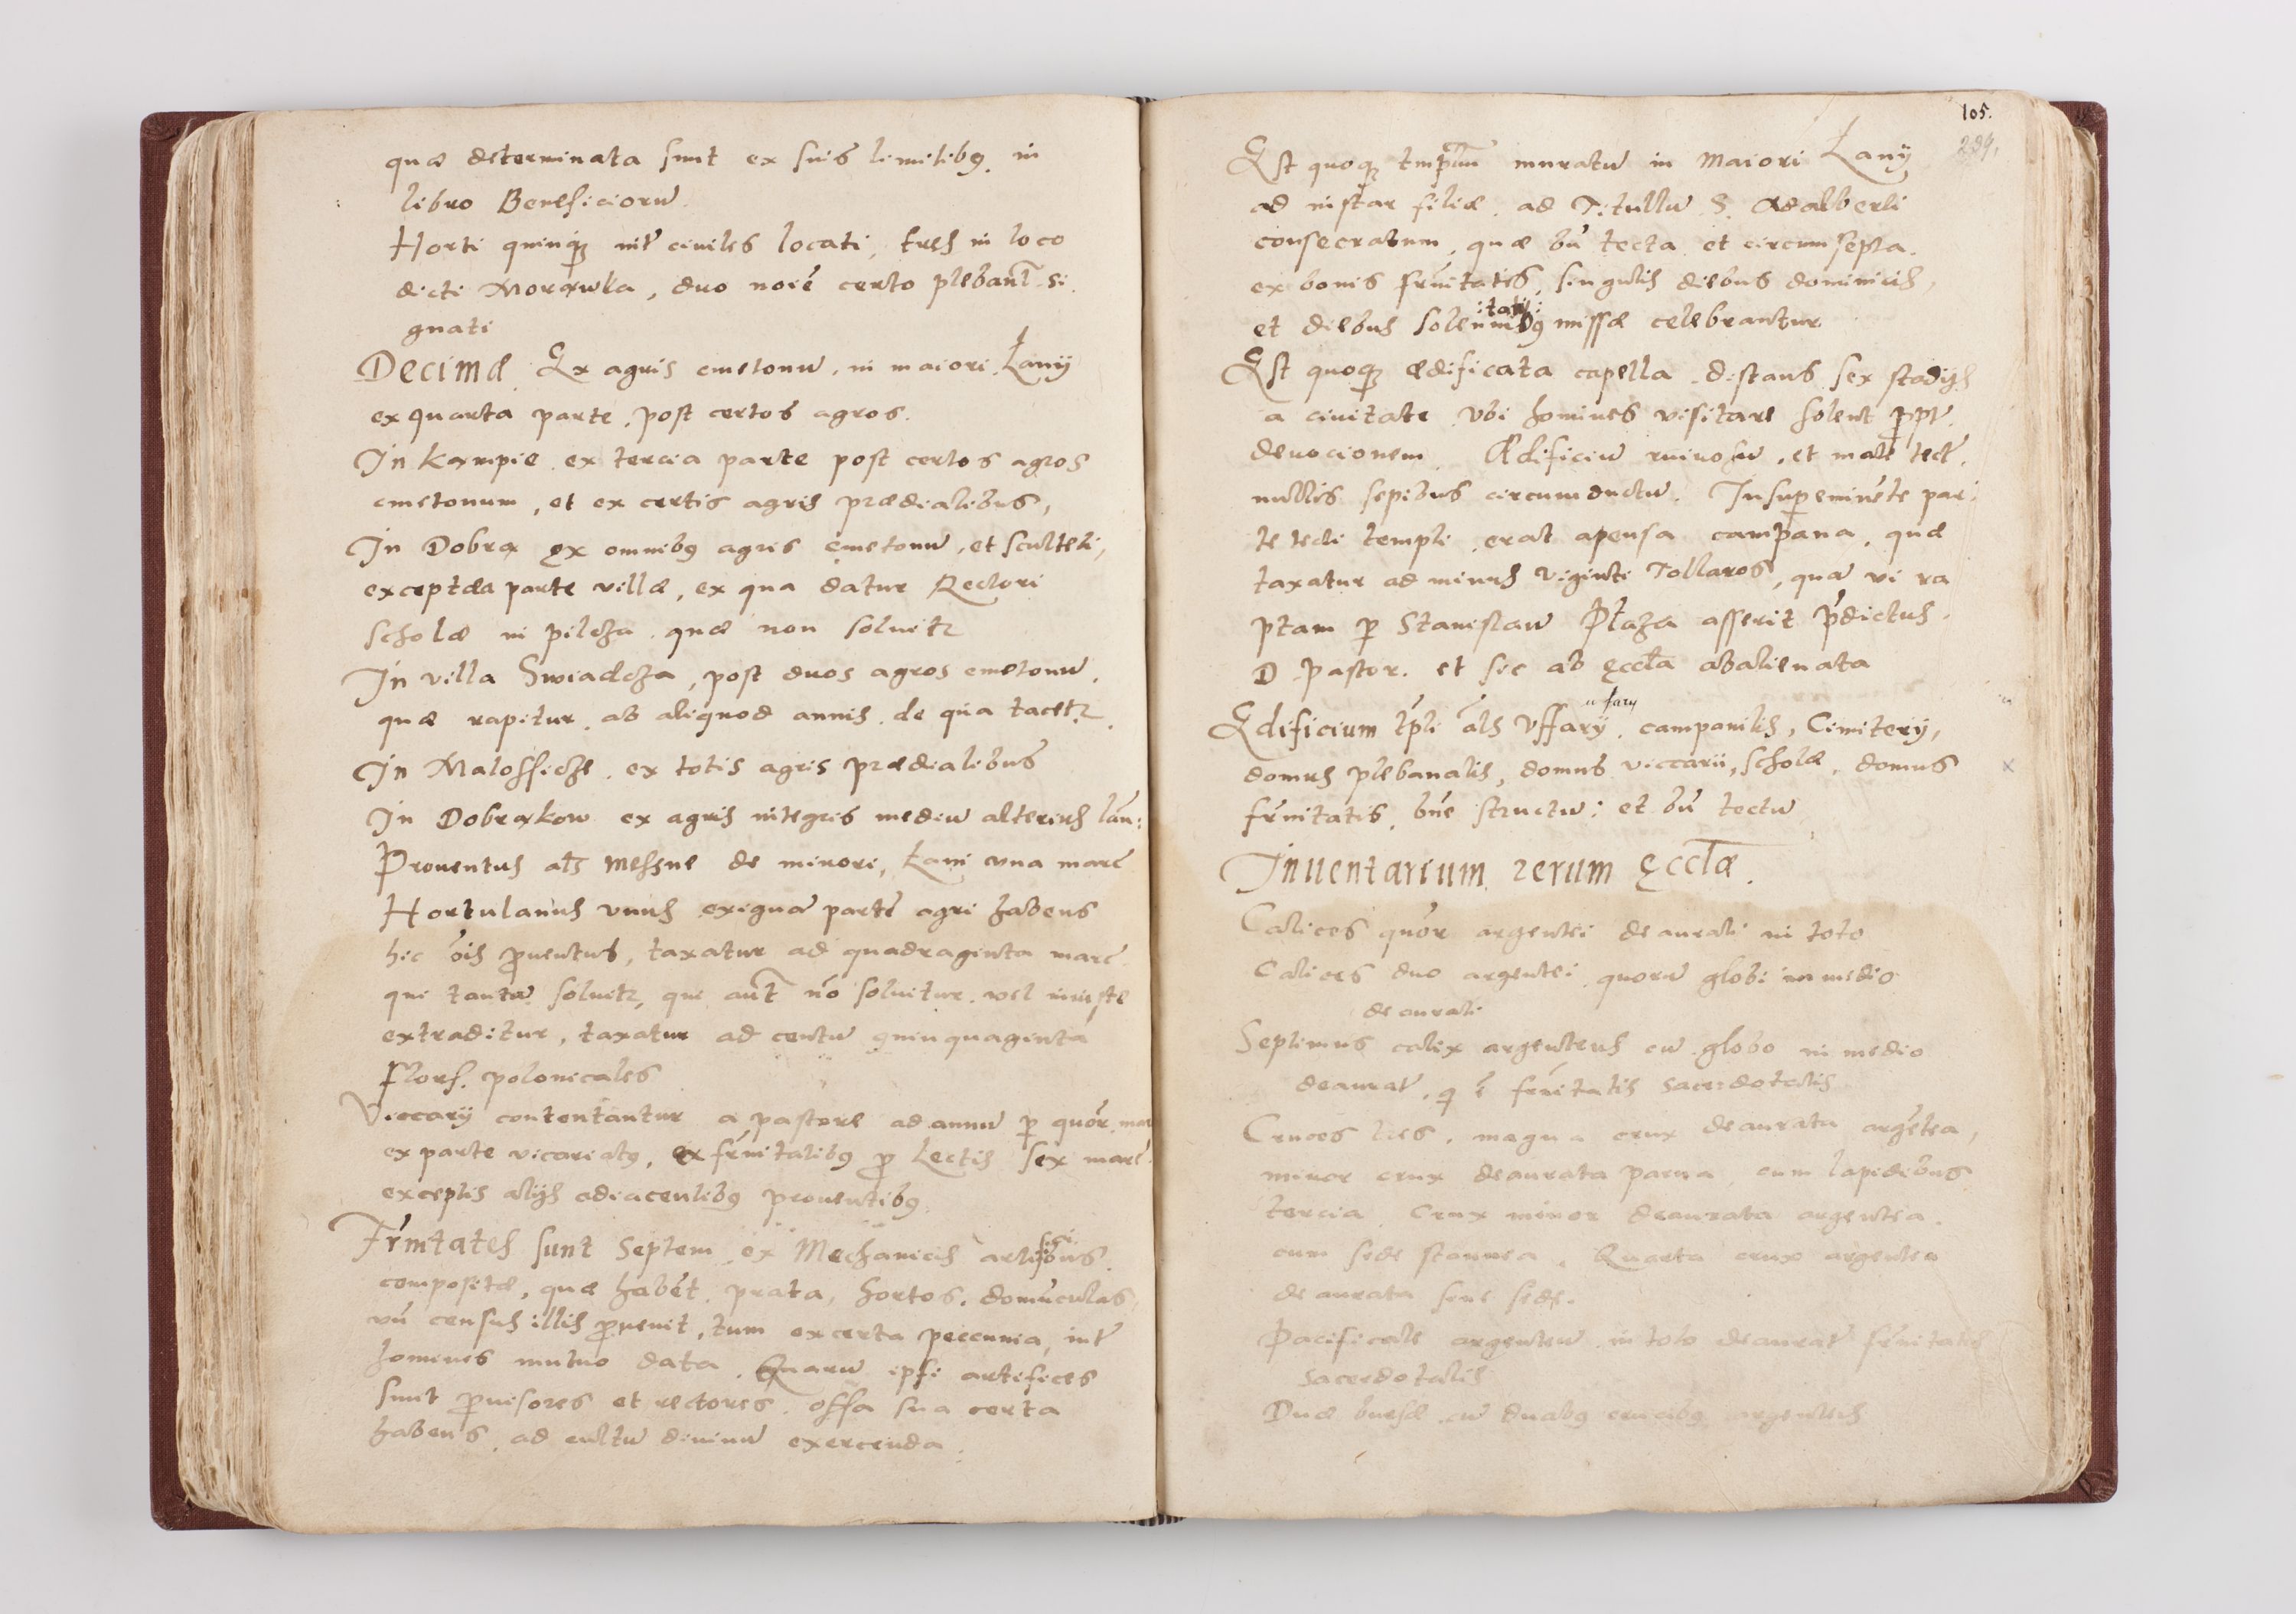 quæ determinata sunt ex suis limitibꝯ in
libro Beneficiorū
Horti quinqꝫ int̄ ciuiles locati, tres in loco
dicti Morawka, duo noiē certo plebanl̄ si
gnati
Decimæ Ex agris cmetonū, in maiori Łany
ex quarta parte, post certos agros.
In Kąmpie ex tercia parte post certos agros
cmetonum, et ex certis agris prædialibus,
In Dobra ex omnibꝯ agris cmetonū, et sculteti,
excepta parte villæ, ex qua datur Rectori
scholæ in pilcza quæ non soluitr
In villa Swiadcza, post duos agros cmetonū,
quæ rapitur ab aliquod annis de qua tacetr
In Malossicze ex totis agris prædialibus
In Dobrakow ex agris integris mediū alterius lan:
Prouentus als Messne de minori Łani vna marc̄
Hortulanus vnus exiguā partē agri habens
hic ōis ꝓuentus, taxatur ad quadraginta marc̄
qui tantū soluitr, qui aut̄ nō soluitur vel iniuste
extraditur, taxatur ad centū quinquaginta
Flors. polonicales
Viccarij contentantur a pastore ad annū ꝑ quōr mar
ex parte vicariatꝯ, ex fr̄nitatibꝯ ꝓ Lectis sex marc̄
exceptis alijs adiacentibꝯ prouentibꝯ
Fr̄nitates sunt Septem ex Mechanicis artificibus
compositæ, quæ habēt prata, hortos, domūculas,
vn̄ census illis ꝓuenit, tum ex certa peccunia, int̄
homines mutuo data. Quarū ipsi artifices
sunt ꝓuisores et rectores offā sua certa
habens ad cultū diuinū exercenda.
105.
Est quoqꝫ tmplūm muratū in Maiori Łany
ad instar filiæ ad Titullū S. Adalberti
consecratum, quæ bn̄ tecta et circumsepta.
ex bonis fr̄nitatis, singulis diebus dominicis,
et diebus solennitatibꝯ missæ celebrantur
Est quoqꝫ ædificata capella distans sex stadijs
a ciuitate Vbi homines visitare solent ꝓpt̄
deuocionem. Ædificiū ruinosū, et male tect̄.
nullis sepibus circumductū. In supeminēte par:
te tecti templi erat apensa campana, quæ
taxatur ad minus viginti Tollaros, quā vi ra
ptam ꝑ Stanislaū Płaza asserit p̄dictus.
D Pastor. et sic ab eccl̄a abalienata
Edificium tp̄li āls Vffary campanilis, Cimitery,
ufary
domus plebanalis, domus viccarii, scholæ, domus
fr̄nitatis, bn̄e structū: et bn̄ tectū
Inuentarium rerum Eccl̄æ.
Calices quōr argentei deaurati in toto
Calices duo argentei quorū globi in medio
deaurati
Septimus calix argenteus cū globo in medio
deaurat̄, q̄ ē fr̄nitatis sacerdotalis
Cruces tres, magna crux deaurata argētea,
minor crux deaurata parua cum lapidibus
tercia Crux minor deaurata argentea
cum sede stannea. Quarta crux argentea
deaurata sine sede.
Pacificale argenteū in toto deaurat̄ fr̄nitatis
sacerdotalis
Duæ bursæ cū duabꝯ crucibꝯ argenteis